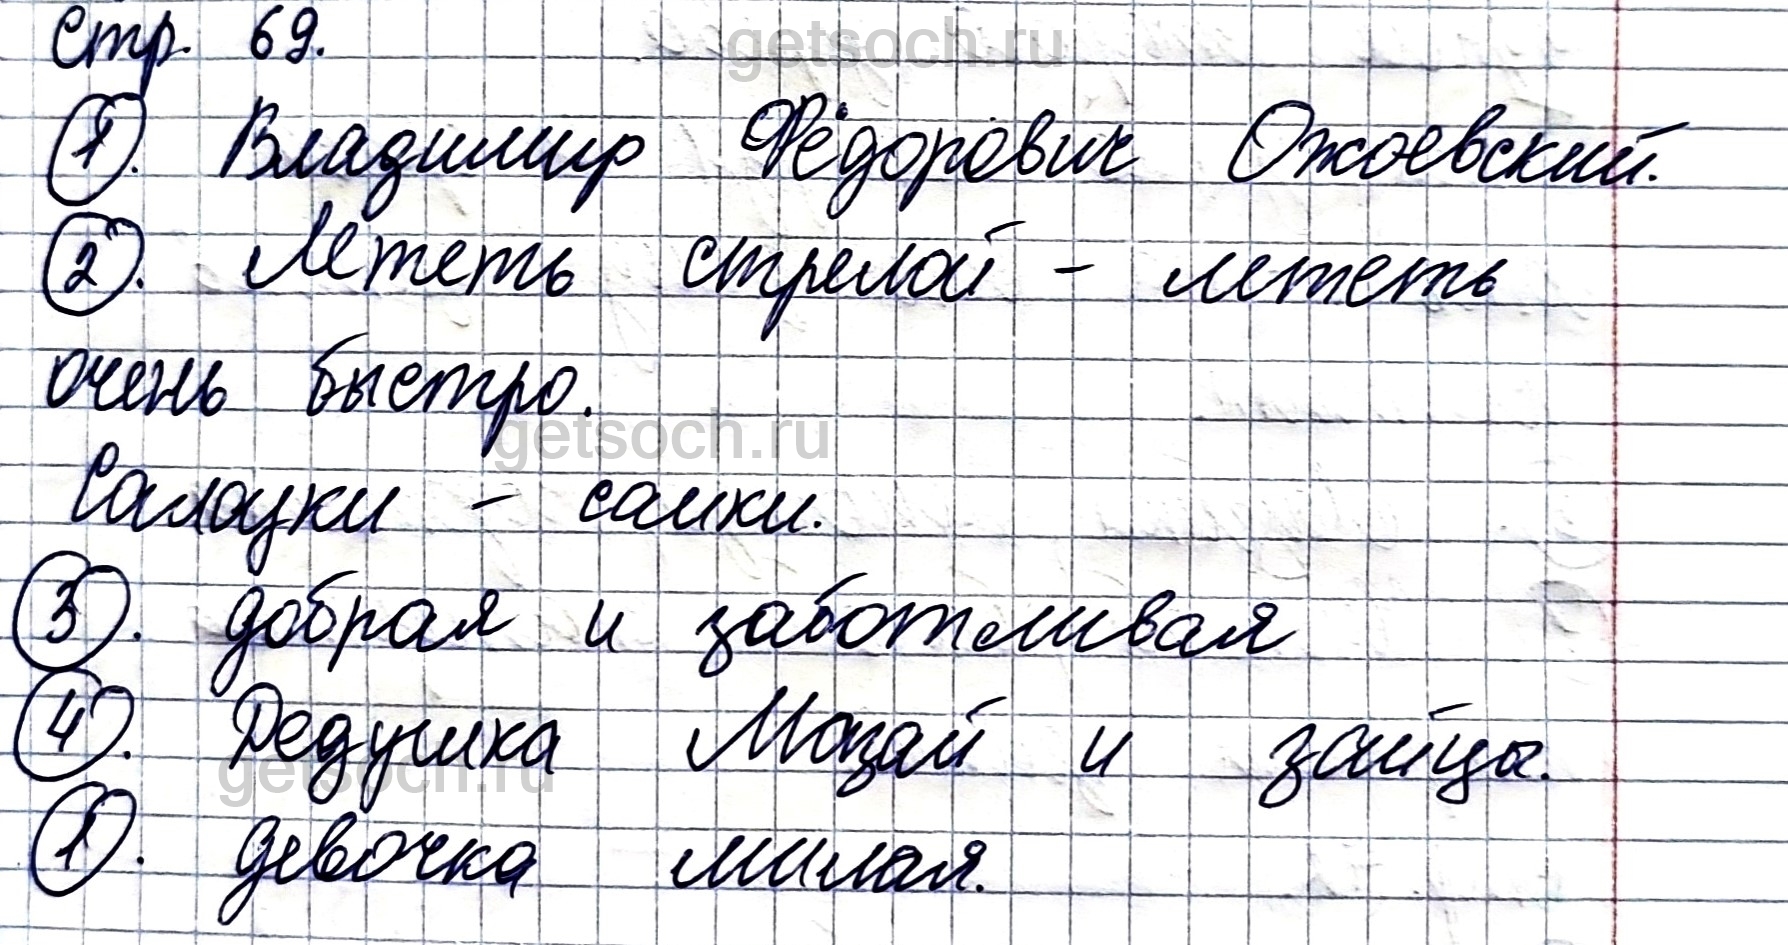 стр. 69.
getsoch.ru
1. Владимир Фёдорович Ожоевский.
2. Лететь стрелой - лететь
очень быстро.
getsoch.ru
Салазки - санки.
3. добрая и заботливая
4. Дедушка Мазай и зайцы.
getsoch.ru
1. девочка милая.